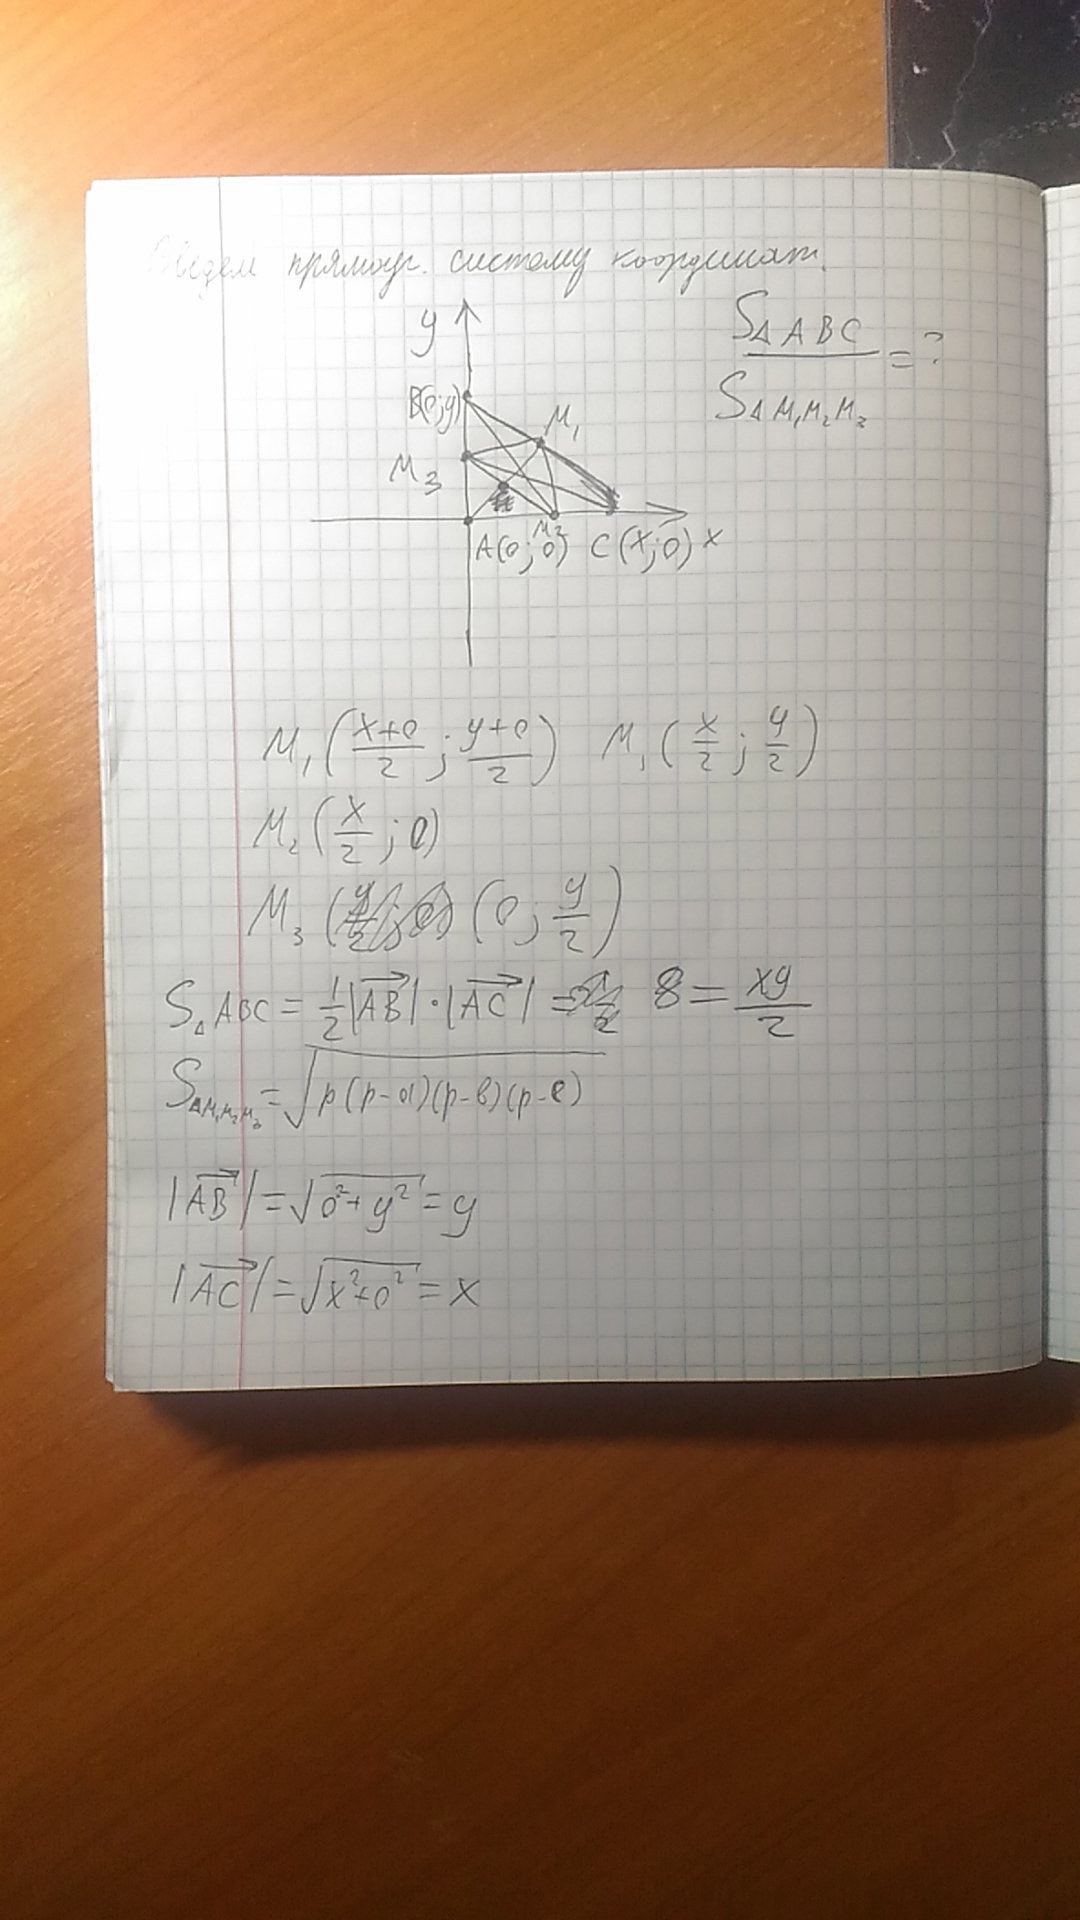 Введем прямоуг. систему координат.
y
S△ABC / S△M₁M₂M₃ = ?
B(0;y)
M₁
M₃
M₂
A(0;0) C(x;0) x
M₁((x+0)/2; (y+0)/2) M₁(x/2; y/2)
M₂(x/2; 0)
M₃ (0; y/2)
S△ABC = 1/2|AB|·|AC| = 8 = xy/2
S△M₁M₂M₃ = √(p(p-a)(p-b)(p-c))
|AB| = √(0²+y²) = y
|AC| = √(x²+0²) = x